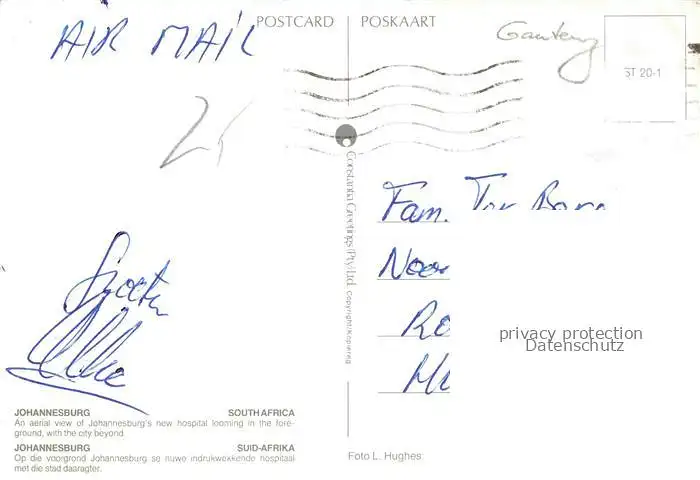 AIR MAIL
POSTCARD POSKAART
Gauteng
ST 20-1
Constantia Greetings (Pty) Ltd. Copyright/Kopiereg
Fam. Ter
Noor
Ro
privacy protection
Datenschutz
Groeten
JOHANNESBURG SOUTH AFRICA
An aerial view of Johannesburg's new hospital looming in the fore-
ground, with the city beyond.
JOHANNESBURG SUID-AFRIKA
Op die voorgrond Johannesburg se nuwe indrukwekkende hospitaal
met die stad daaragter.
Foto L. Hughes